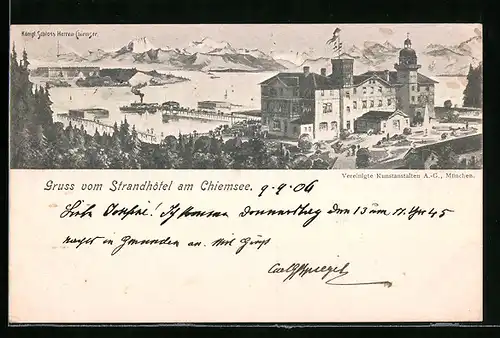 Königl. Schloss Herren-Chiemsee.
Vereinigte Kunstanstalten A.-G., München.
Gruss vom Strandhôtel am Chiemsee. 9.9.06
Liebe! Ich komme Donnerstag den 13 um 11 Uhr 45
in Gmunden an. Mit Gruß
Carl Spiegel